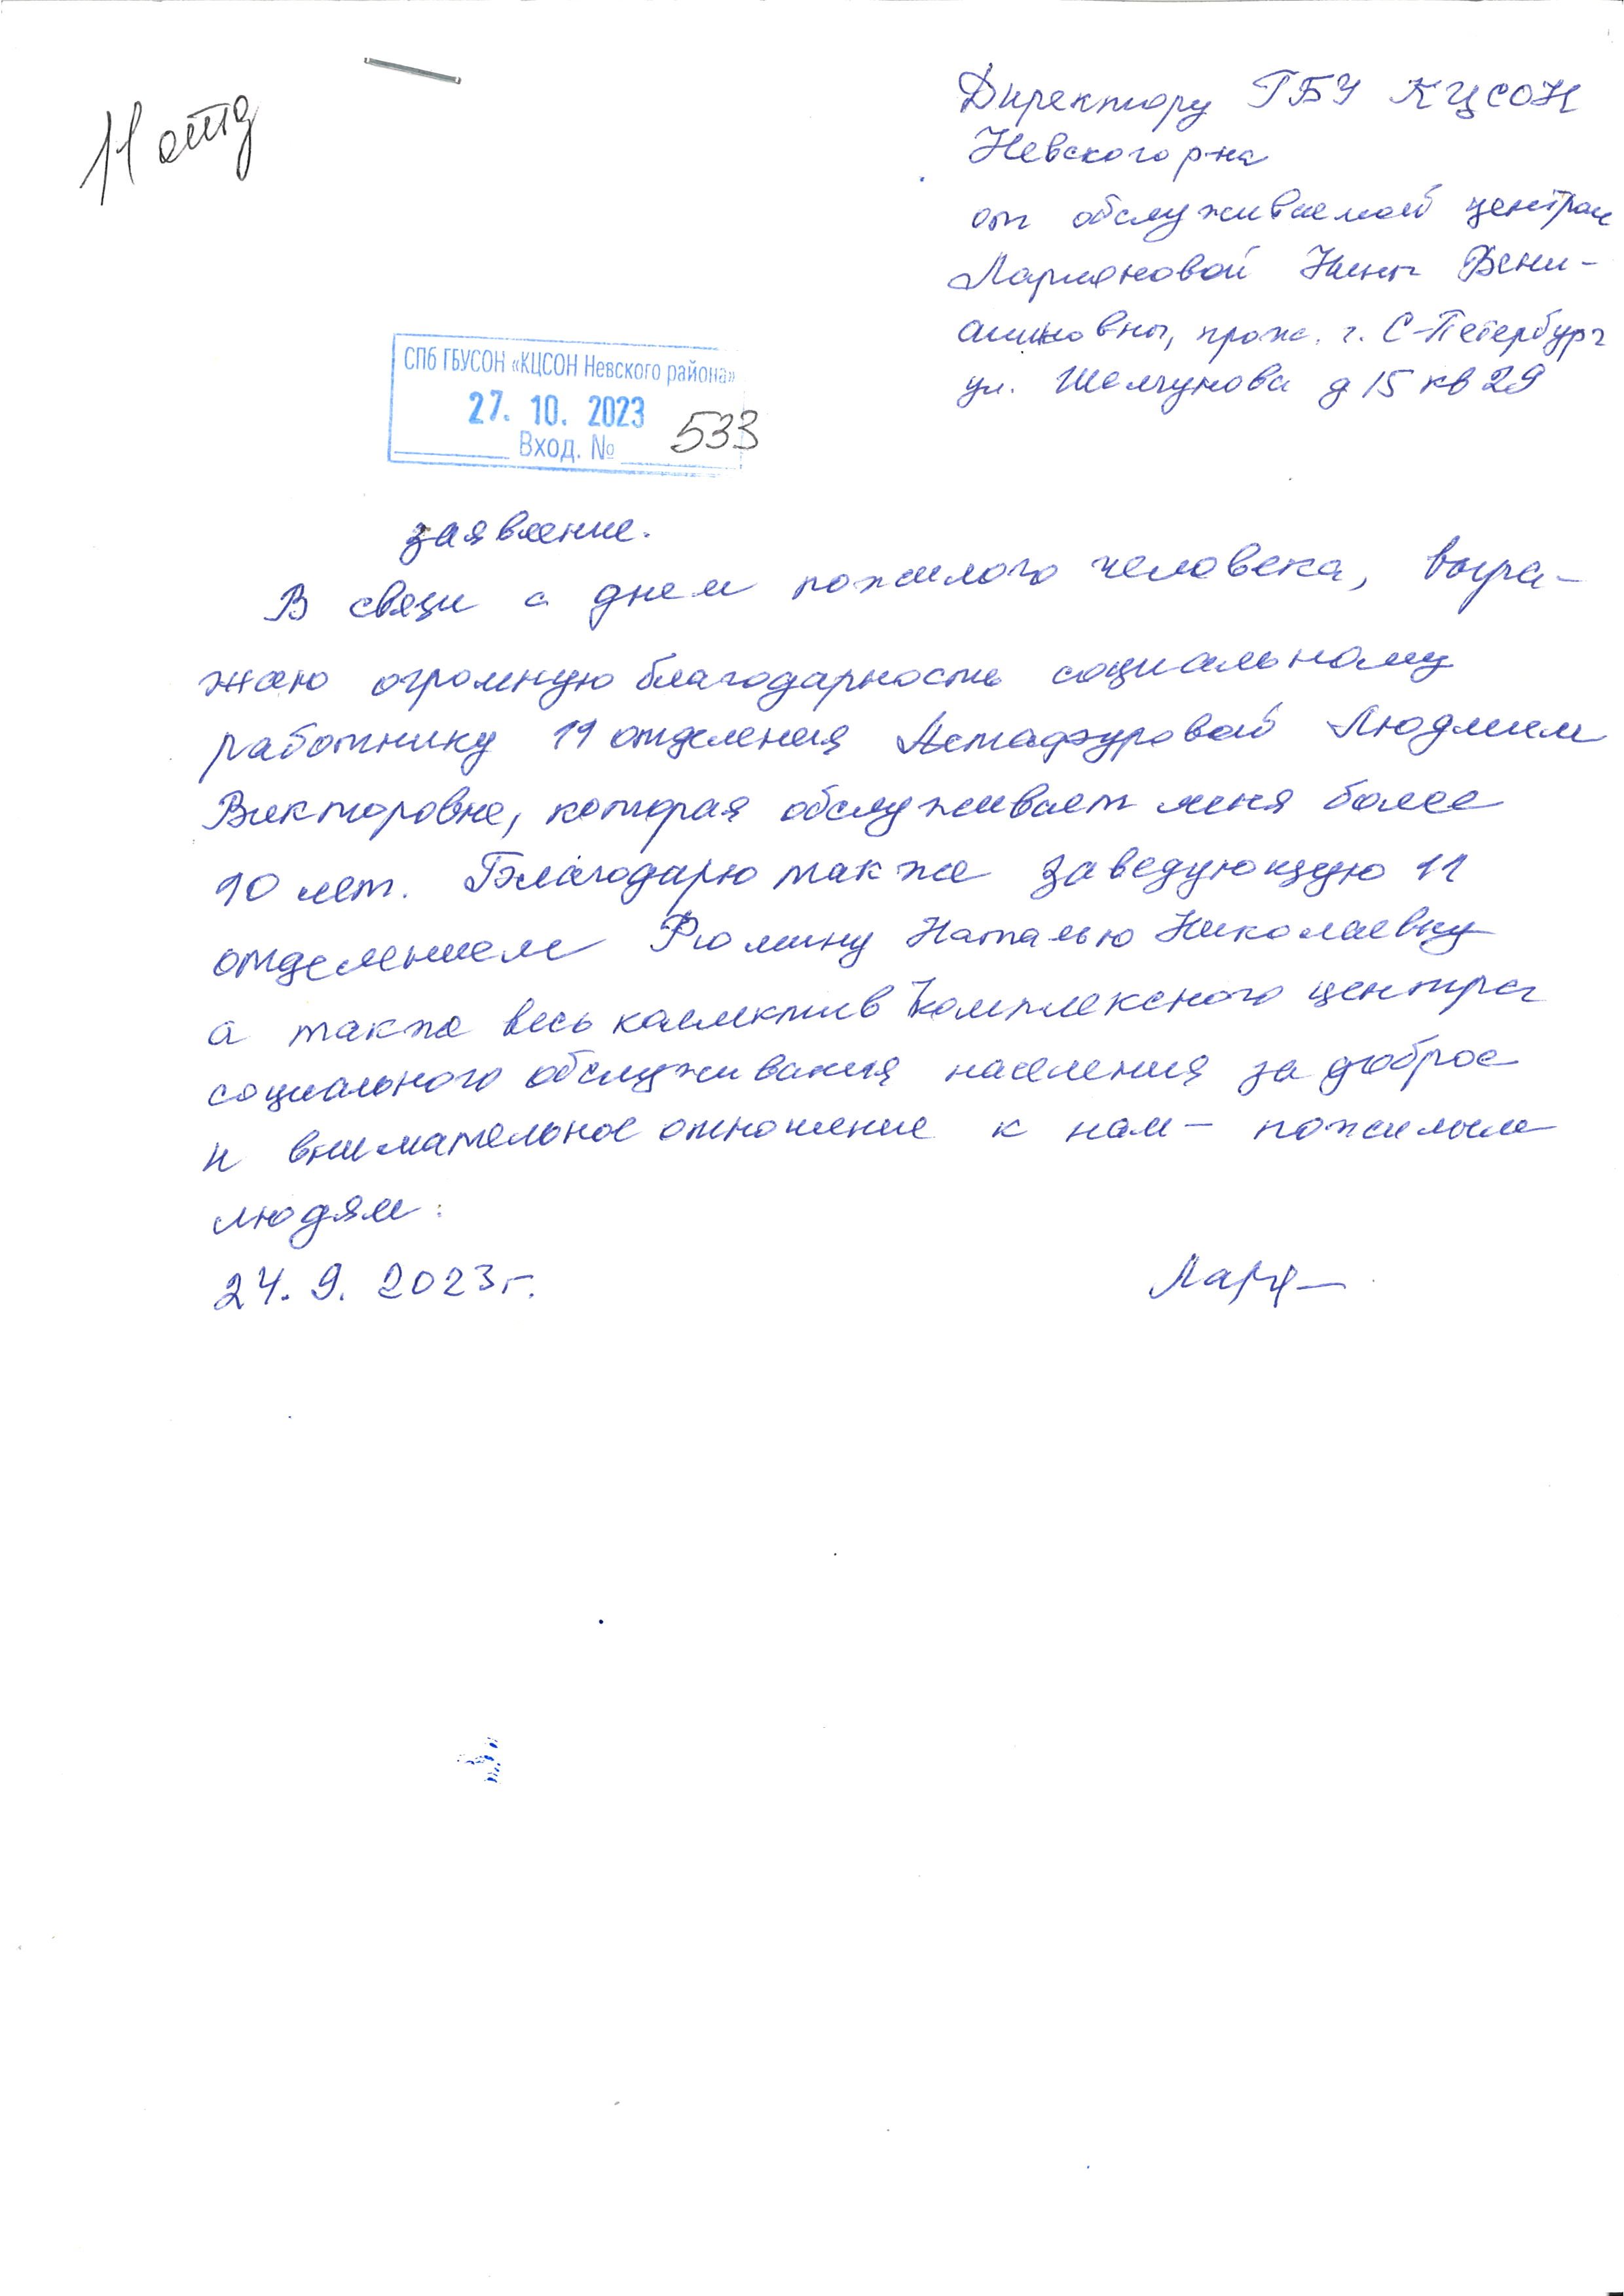 11 отд
Директору ГБУ КЦСОН
Невского р-на
от обслуживаемой центром
Ларионовой Нины Вени-
аминовны, прож. г. С-Петербург
ул. Шелгунова д 15 кв 29
СПб ГБУСОН «КЦСОН Невского района»
27. 10. 2023
Вход. № 533
заявление.
В связи с днем пожилого человека, выра-
жаю огромную благодарность социальному
работнику 11 отделения Астафуровой Людмиле
Викторовне, которая обслуживает меня более
10 лет. Благодарю также заведующую 11
отделением Рюмину Наталью Николаевну
а также весь коллектив Комплексного центра
социального обслуживания населения за доброе
и внимательное отношение к нам - пожилым
людям.
24. 9. 2023г.